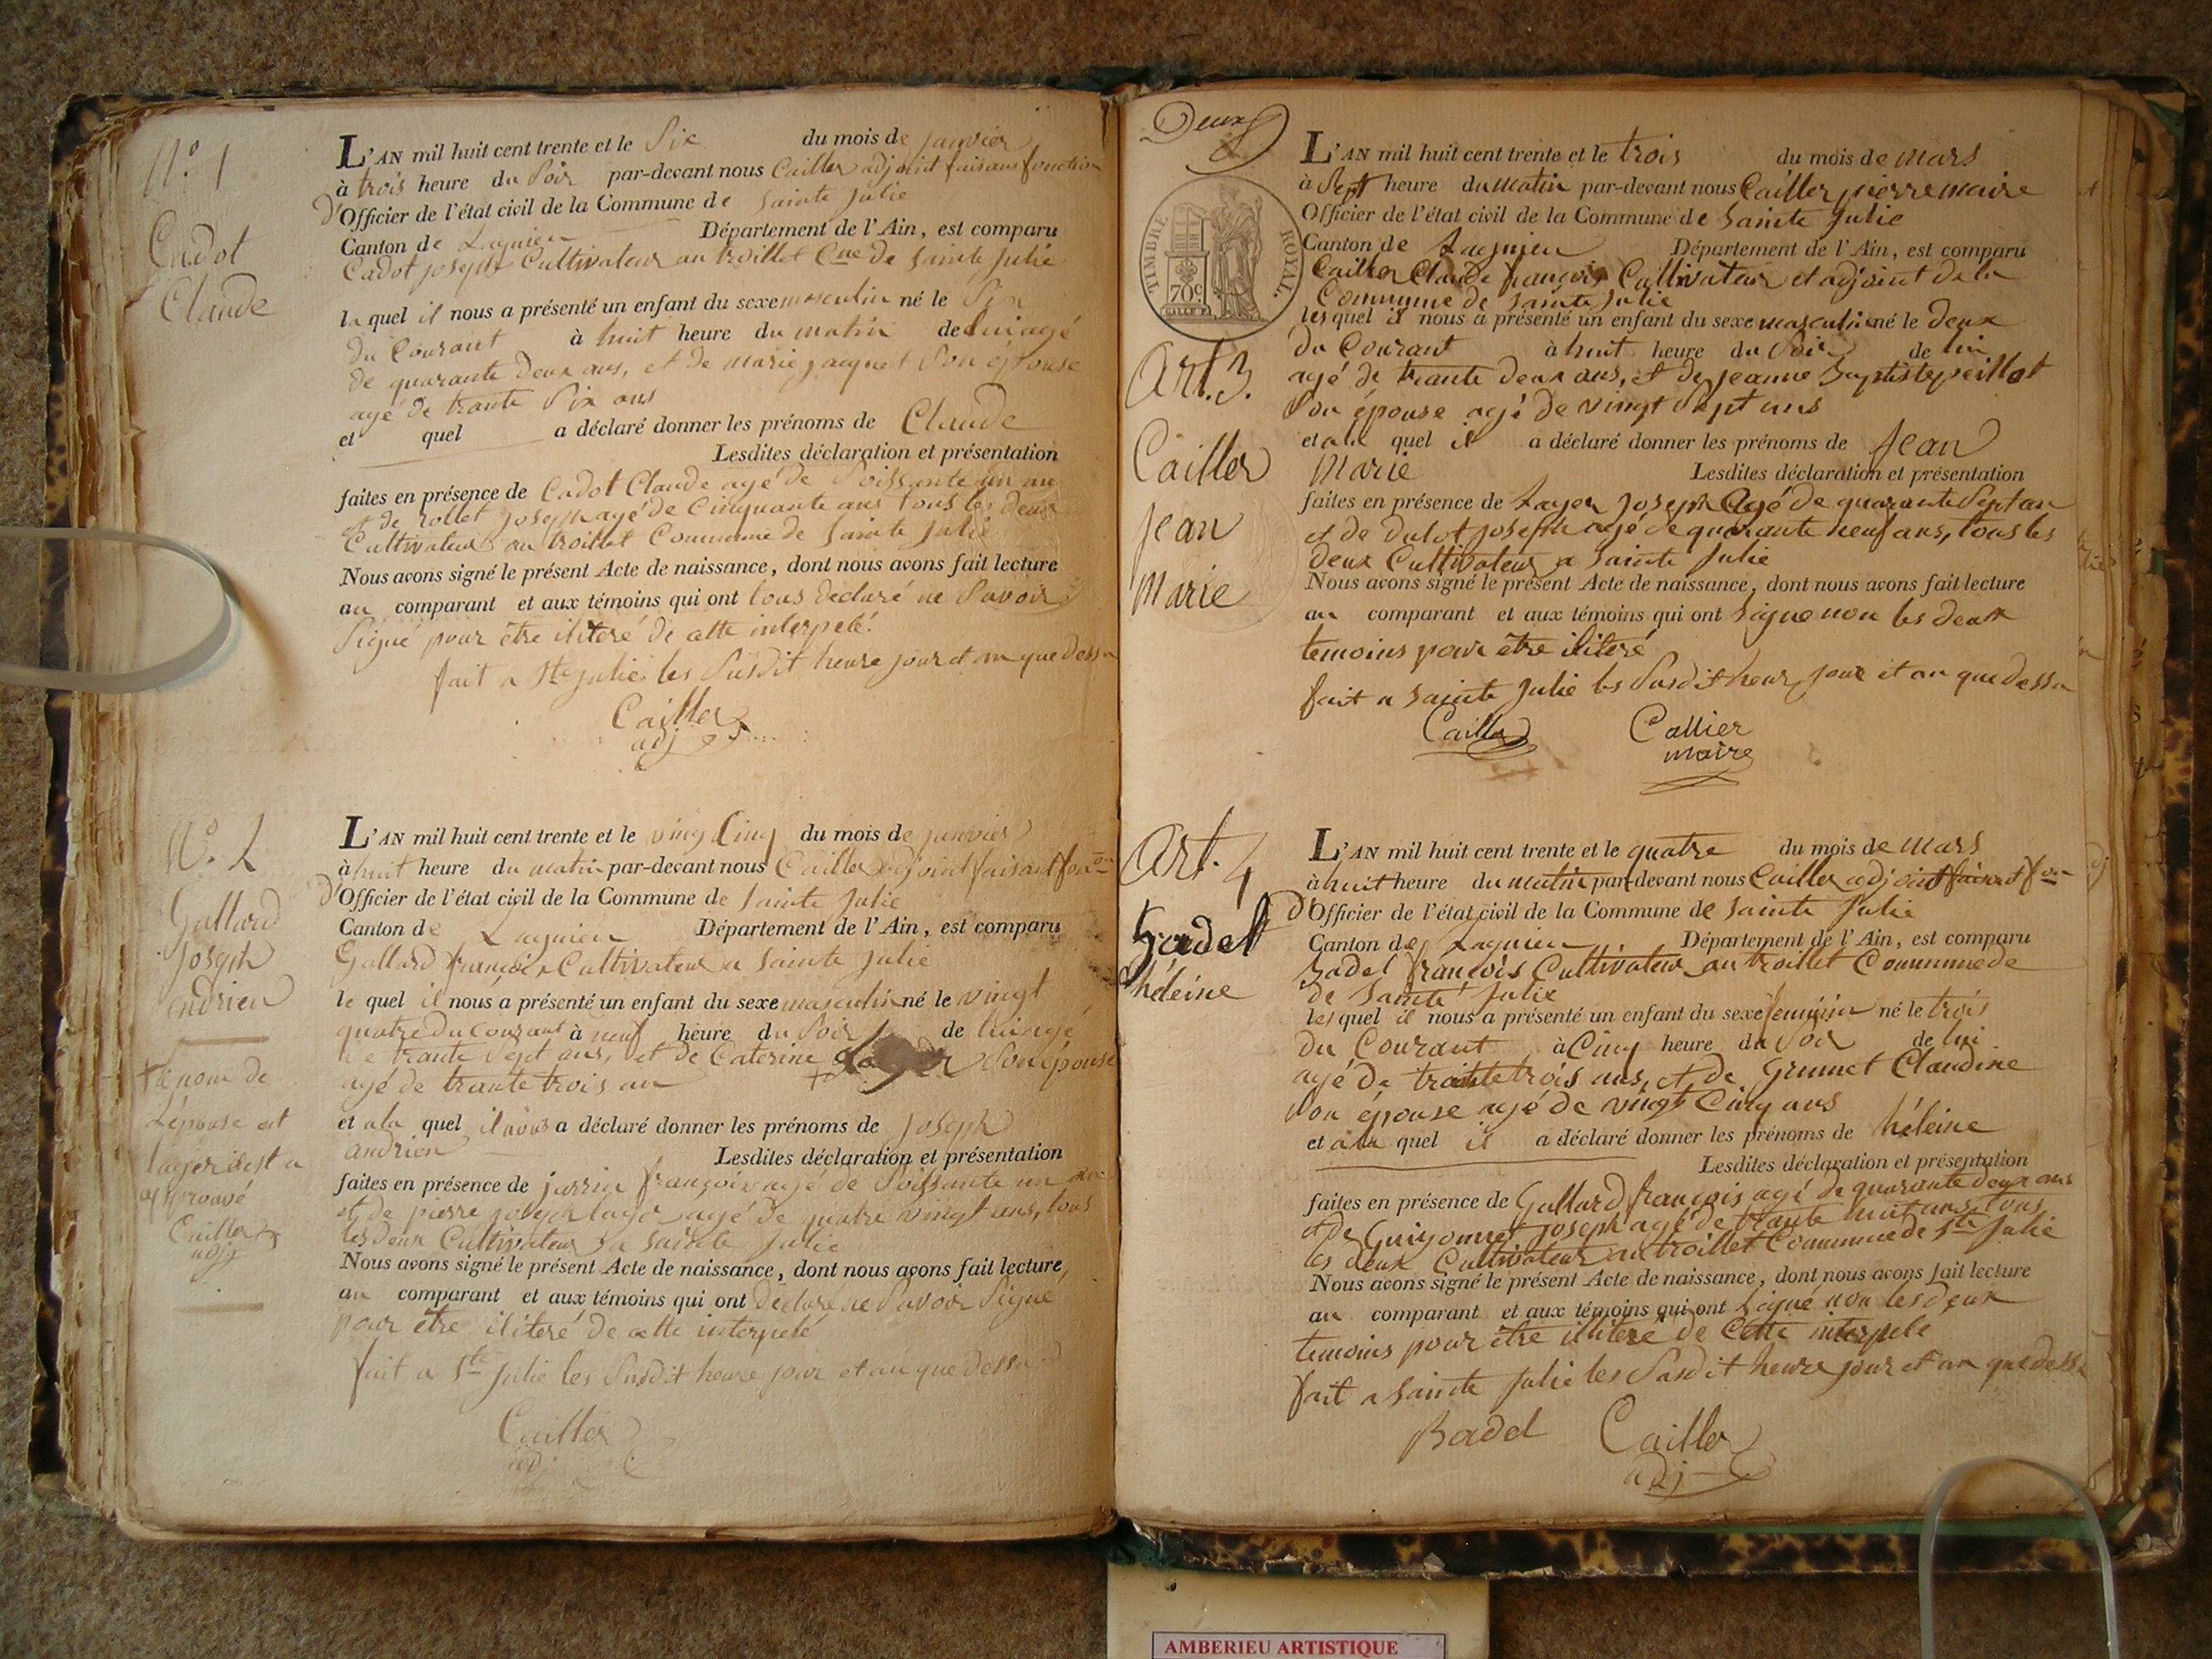 N.° 1
Cadot
Claude
L'AN mil huit cent trente et le Six du mois de janvier
à trois heure du Soir par-devant nous Cailler adjoint faisant fonction
d'Officier de l'état civil de la Commune de Sainte Julie
Canton de Lagnieu Département de l'Ain, est comparu
Cadot joseph Cultivateur au troillet Cne de Sainte Julie
le quel il nous a présenté un enfant du sexe masculin né le Six
du Courant à huit heure du matin de lui agé
de quarante deux ans, et de marie jacquet Son épouse
agé de trante Six ans
et quel a déclaré donner les prénoms de Claude
Lesdites déclaration et présentation
faites en présence de Cadot Claude agé de Soissante un an
et de rollet joseph agé de Cinquante ans tous les deux
Cultivateur au troillet Commune de Sainte Julie
Nous avons signé le présent Acte de naissance, dont nous avons fait lecture
au comparant et aux témoins qui ont tous declaré ne Savoir
Signé pour être iliteré de cette interpelé.
fait a Ste Julie les Susdit heure jour et an que dessu
Cailler
adj
N.° 2
Gallard
Joseph
andrien
+ le nom de
l'épouse est
lager est a
approuvé
Cailler
adj
L'AN mil huit cent trente et le vingt Cinq du mois de janvier
à huit heure du matin par-devant nous Cailler adjoint faisant fon.on
d'Officier de l'état civil de la Commune de Sainte Julie
Canton de Lagnieu Département de l'Ain, est comparu
Gallard françois Cultivateur a Sainte Julie
le quel il nous a présenté un enfant du sexe masculin né le vingt
quatre du Courant à neuf heure du Soir de lui agé
de trante Sept ans, et de Caterine Son épouse
agé de trante trois an +
et a la quel il nous a déclaré donner les prénoms de Joseph
andrien
Lesdites déclaration et présentation
faites en présence de françois agé de Soissante un ans
et de pierre joseph agé de quatre vingt ans, tous
les deux Cultivateur a Sainte Julie
Nous avons signé le présent Acte de naissance, dont nous avons fait lecture
au comparant et aux témoins qui ont declaré ne Savoir Signé
pour être iliteré de cette interpelé
fait a Ste Julie les Susdit heure jour et an que dessu
Cailler
adj
Deux
TIMBRE ROYAL.
70c
Art. 3.
Cailler
Jean
Marie
L'AN mil huit cent trente et le trois du mois de Mars
à Sept heure du Matin par-devant nous Cailler pierre maire
Officier de l'état civil de la Commune de Sainte Julie
Canton de Lagnieu Département de l'Ain, est comparu
Cailler Claude françois Cultivateur et adjoint de la
Commune de Sainte Julie
les quel il nous a présenté un enfant du sexe masculin né le deux
du Courant à huit heure du Soir de lui
agé de trante deux ans, et de Jeanne Baptiste peillot
Son épouse agé de vingt Sept ans
et a la quel il a déclaré donner les prénoms de Jean
Marie
Lesdites déclaration et présentation
faites en présence de Layer Joseph Agé de quarante Sept an
et de Dulot Joseph agé de quarante neuf ans, tous les
deux Cultivateur a Sainte Julie
Nous avons signé le présent Acte de naissance, dont nous avons fait lecture
au comparant et aux témoins qui ont Signé non les deux
temoins pour être iliteré
fait a Sainte Julie les Susdit heur, jour et an que dessu
Cailler Callier
maire
Art. 4
Badel
héleine
L'AN mil huit cent trente et le quatre du mois de Mars
à huit heure du matin par-devant nous Cailler adjoint faisant f.on
d'Officier de l'état civil de la Commune de Sainte Julie
Canton de Lagnieu Département de l'Ain, est comparu
Badel françois Cultivateur au troillet Commune de
de Sainte Julie
les quel il nous a présenté un enfant du sexe feminin né le trois
du Courant à Cinq heure du Soir de lui
agé de trante trois ans, et de Grumet Claudine
Son épouse agé de vingt Cinq ans
et a la quel il a déclaré donner les prénoms de héleine
Lesdites déclaration et présentation
faites en présence de Gallard françois agé de quarante deux ans
et de Guigonnet joseph agé de trante huit ans, tous
les deux Cultivateur au troillet Commune de Ste Julie
Nous avons signé le présent Acte de naissance, dont nous avons fait lecture
au comparant et aux témoins qui ont Signé non les deux
temoins pour être iliteré de Cette interpelé
fait a Sainte Julie les Susdit heure jour et an que dessu
Badel Cailler
adj
AMBERIEU ARTISTIQUE